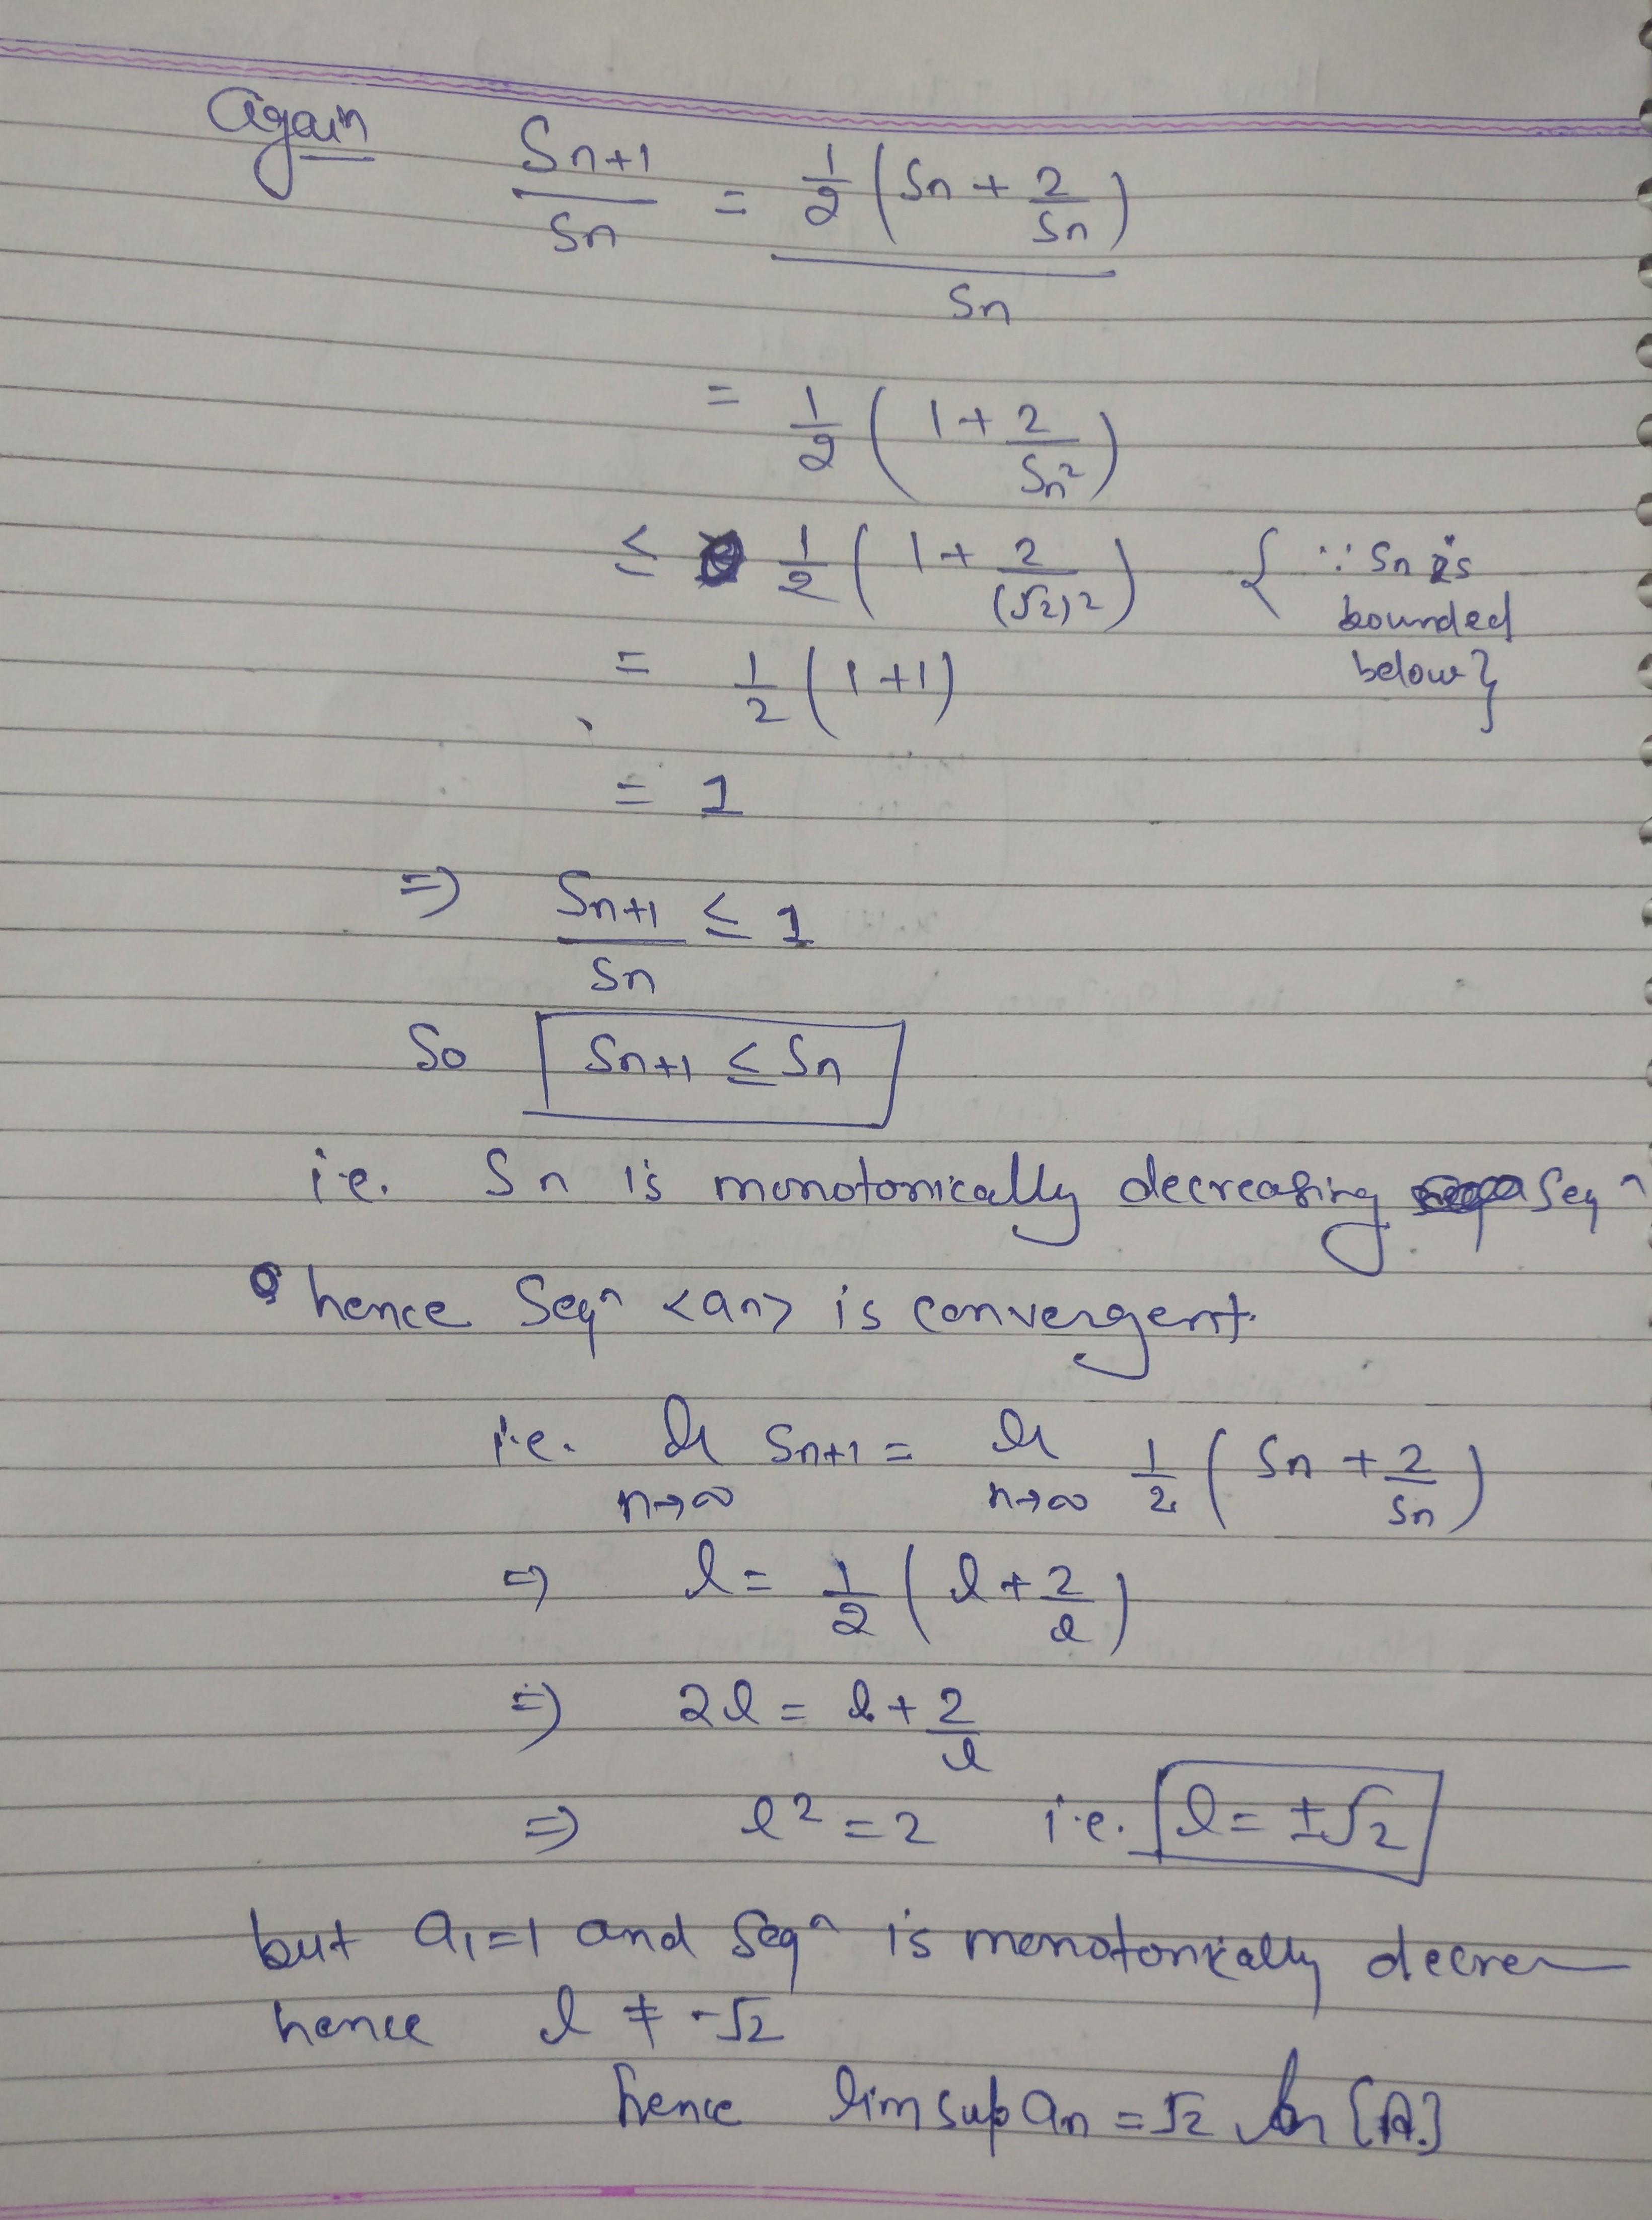 Again Sn+1/Sn = 1/2 (Sn + 2/Sn) / Sn
= 1/2 (1 + 2/Sn²)
≤ 1/2 (1 + 2/(√2)²) { ∵ Sn is bounded below }
= 1/2 (1+1)
= 1
⇒ Sn+1/Sn ≤ 1
So Sn+1 ≤ Sn
i.e. Sn is monotonically decreasing Seqⁿ
hence Seqⁿ <an> is convergent.
i.e. lt n→∞ Sn+1 = lt n→∞ 1/2 (Sn + 2/Sn)
⇒ l = 1/2 (l + 2/l)
⇒ 2l = l + 2/l
⇒ l² = 2 i.e. l = ±√2
but a1=1 and Seqⁿ is monotonically decre
hence l ≠ -√2
hence lim sup an = √2 {A.}